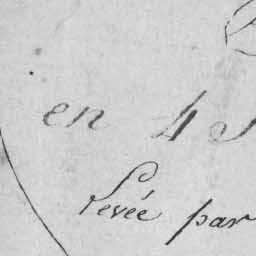 en 4
Levée par